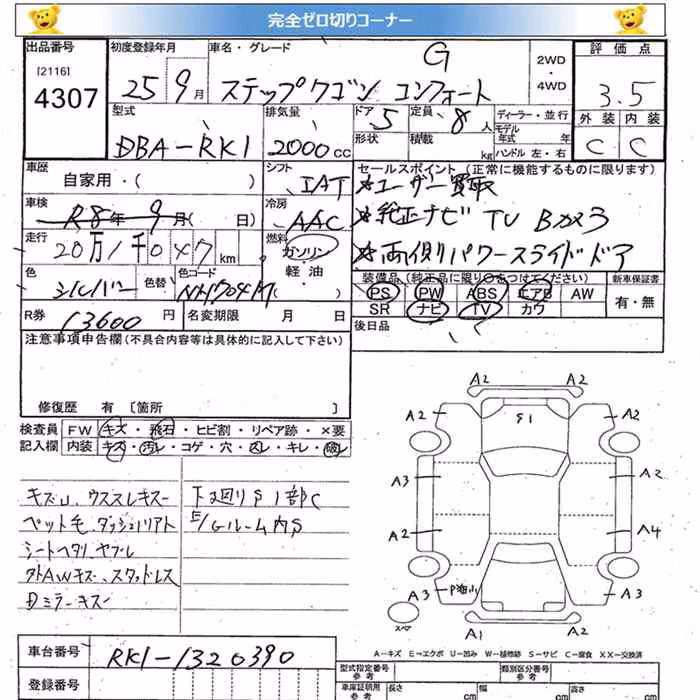 完全ゼロ切りコーナー
出品番号 初度登録年月 車名・グレード G 2WD ・ 4WD 評価点
[2116] 4307 25 9月 ステップワゴン コンフォート 3.5
型式 排気量 ドア 5 定員 8人 ディーラー・並行 外装 内装
DBA-RK1 2000cc 形状 積載 kg モデル年式 年 ハンドル 左・右 C C
車歴 シフト セールスポイント (正常に機能するものに限ります)
自家用・( ) IAT ★ユーザー買取
車検 冷房 ★純正ナビ TV Bカメラ
R8年 9月( 日) AAC
走行 燃料 ★両側パワースライドドア
20万1千047km ガソリン・軽油・( )
色 色替 色コード 装備品 (純正品に限り○をつけてください) 新車保証書
シルバー NH704M PS PW ABS エアB AW 有・無
SR ナビ TV カワ
R券 13600円 名変期限 月 日 後日品
注意事項申告欄(不具合内容等は具体的に記入して下さい)
修復歴 有 [箇所 ]
検査員記入欄 FW キズ・飛石・ヒビ割・リペア跡・×要
内装 キズ・汚レ・コゲ・穴・凶レ・キレ・破レ
キズ山、ウススレキズー
ペット毛、ダッシュリアト
シートヘタリ、ヤブレ
外AWキズ、スタッドレス
Dミラーキズー
下回りS1部C
E/Gルーム内S
A2
A2 S1 A2
A3 A2
A2 A4
A3 A3
スペア A1 A2
A-キズ E-エクボ U-凹み W-補修跡 S-サビ C-腐食 XX-交換済
車台番号 RK1-1320390
登録番号
型式指定番号 参考 類別区分番号 参考
車庫証明用 参考 長さ cm 幅 cm 高さ cm